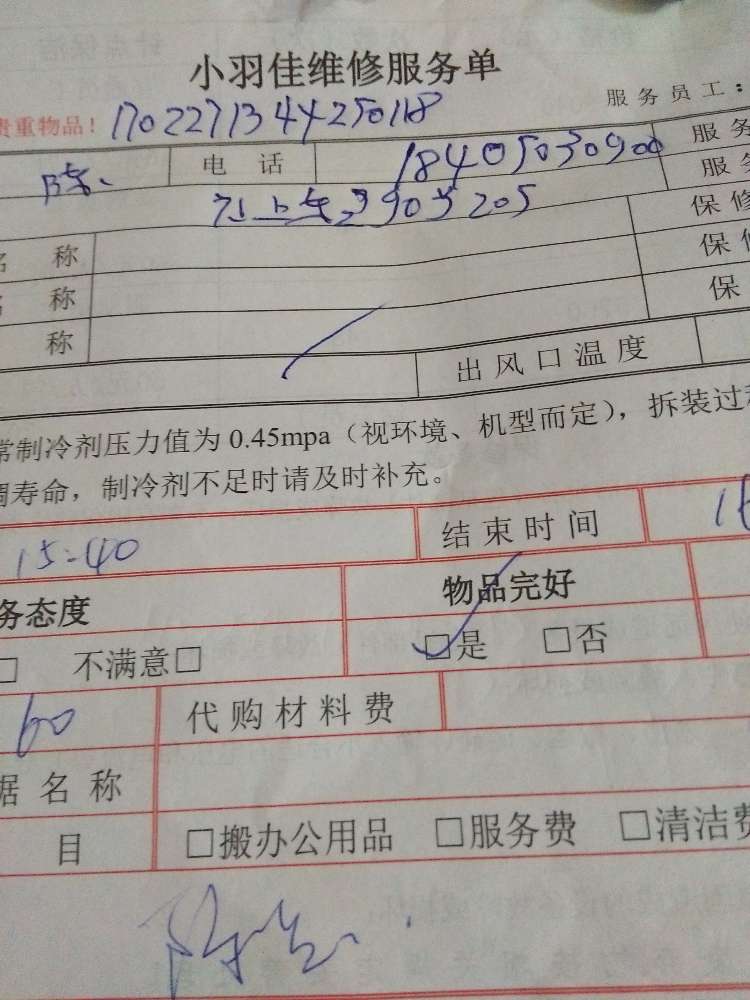 小羽佳维修服务单
服务员工：
贵重物品！170227134425018
陈 电话 18405030900 服务
205 服务
名称 保修
名称 保修
称 保
出风口温度
常制冷剂压力值为0.45mpa（视环境、机型而定），拆装过
调寿命，制冷剂不足时请及时补充。
15-40 结束时间
务态度 物品完好
□ 不满意□ □是 □否
60 代购材料费
据名称
目 □搬办公用品 □服务费 □清洁费